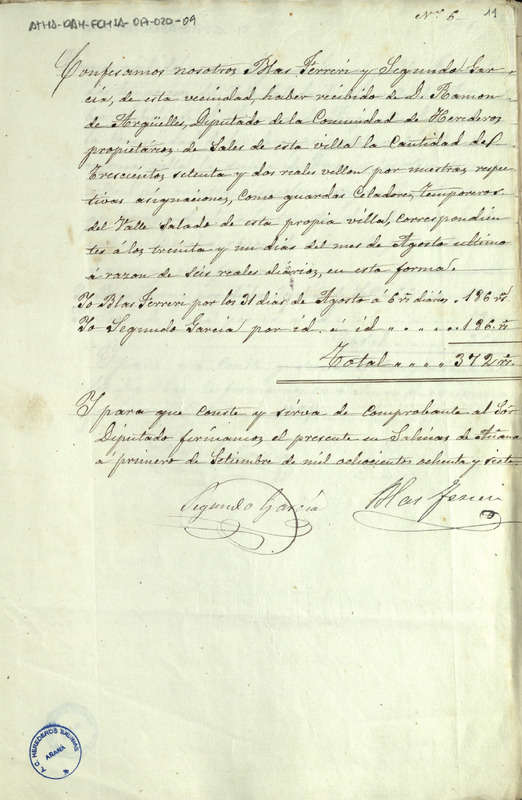 ATHA-DAH-FCHSA-OA-020-09
Nº 6
11
Confesamos nosotros Blas Ferreri y Segundo Gar-
cía, de esta vecindad, haber recibido de D. Ramon
de Argüelles, Diputado de la Comunidad de Herederos
propietarios de Sales de esta villa la cantidad de
trescientos setenta y dos reales vellon por nuestras respec-
tivas asignaciones, como guardas Celadores, temporeros
del Valle Salado de esta propia villa, correspondien-
tes á los treinta y un dias del mes de Agosto ultimo
á razon de seis reales diários, en esta forma.
Yo Blas Ferreri por los 31 dias de Agosto a 6 rs diários . 186 rs.
Yo Segundo García por id. á id " . . . . 186. rs
Total " " " " 372 rs.
Y para que conste y sirva de comprobante al Sor
Diputado firmamos el presente en Salinas de Añana
á primero de Setiembre de mil ochocientos ochenta y siete.
Segundo García
Blas Ferreri
A. C. HEREDEROS SALINAS
AÑANA